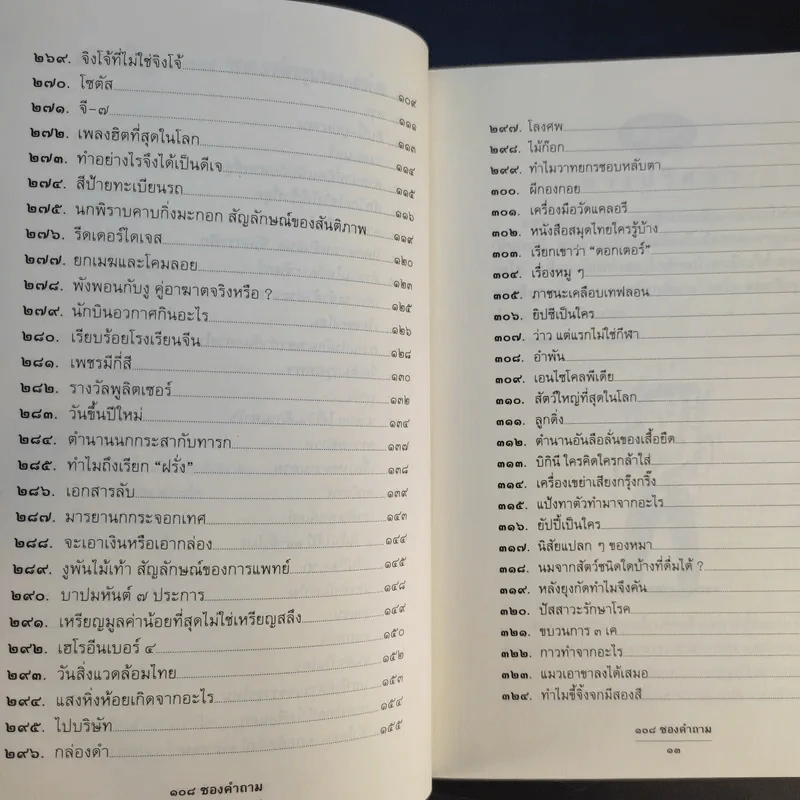 ๒๖๙. จิงโจ้ที่ไม่ใช่จิงโจ้ ๑๐๙
๒๗๐. โซตัส ๑๑๑
๒๗๑. จี-๗ ๑๑๓
๒๗๒. เพลงฮิตที่สุดในโลก ๑๑๔
๒๗๓. ทำอย่างไรจึงได้เป็นดีเจ ๑๑๕
๒๗๔. สีป้ายทะเบียนรถ ๑๑๖
๒๗๕. นกพิราบคาบกิ่งมะกอก สัญลักษณ์ของสันติภาพ ๑๑๙
๒๗๖. รีดเดอร์ไดเจส ๑๒๐
๒๗๗. ยกเมฆและโคมลอย ๑๒๓
๒๗๘. พังพอนกับงู คู่อาฆาตจริงหรือ ? ๑๒๕
๒๗๙. นักบินอวกาศกินอะไร ๑๒๖
๒๘๐. เรียบร้อยโรงเรียนจีน ๑๒๘
๒๘๑. เพชรมีกี่สี ๑๓๐
๒๘๒. รางวัลพูลิตเซอร์ ๑๓๒
๒๘๓. วันขึ้นปีใหม่ ๑๓๔
๒๘๔. ตำนานนกกระสากับทารก ๑๓๗
๒๘๕. ทำไมถึงเรียก “ฝรั่ง” ๑๓๘
๒๘๖. เอกสารลับ ๑๓๙
๒๘๗. มารยานกกระจอกเทศ ๑๔๓
๒๘๘. จะเอาเงินหรือเอากล่อง ๑๔๔
๒๘๙. งูพันไม้เท้า สัญลักษณ์ของการแพทย์ ๑๔๕
๒๙๐. บาปมหันต์ ๗ ประการ ๑๔๘
๒๙๑. เหรียญมูลค่าน้อยที่สุดไม่ใช่เหรียญสลึง ๑๔๙
๒๙๒. เฮโรอีนเบอร์ ๔ ๑๕๐
๒๙๓. วันสิ่งแวดล้อมไทย ๑๕๒
๒๙๔. แสงหิ่งห้อยเกิดจากอะไร ๑๕๓
๒๙๕. ไปบริษัท ๑๕๔
๒๙๖. กล่องดำ ๑๕๕
๑๐๘ ซองคำถาม
๒๙๗. โลงศพ
๒๙๘. ไม้ก๊อก
๒๙๙. ทำไมวาทยกรชอบหลับตา
๓๐๐. ผีกองกอย
๓๐๑. เครื่องมือวัดแคลอรี
๓๐๒. หนังสือสมุดไทยใครรู้บ้าง
๓๐๓. เรียกเขาว่า “ดอกเตอร์”
๓๐๔. เรื่องหมู ๆ
๓๐๕. ภาชนะเคลือบเทฟลอน
๓๐๖. ยิปซีเป็นใคร
๓๐๗. ว่าว แต่แรกไม่ใช่กีฬา
๓๐๘. อำพัน
๓๐๙. เอนไซโคลพีเดีย
๓๑๐. สัตว์ใหญ่ที่สุดในโลก
๓๑๑. ลูกดิ่ง
๓๑๒. ตำนานอันลือลั่นของเสื้อยืด
๓๑๓. บิกินี ใครคิดใครกล้าใส่
๓๑๔. เครื่องเขย่าเสียงกรุ๊งกริ๊ง
๓๑๕. แป้งทาตัวทำมาจากอะไร
๓๑๖. ยัปปี้เป็นใคร
๓๑๗. นิสัยแปลก ๆ ของหมา
๓๑๘. นมจากสัตว์ชนิดใดบ้างที่ดื่มได้ ?
๓๑๙. หลังยุงกัดทำไมจึงคัน
๓๒๐. ปัสสาวะรักษาโรค
๓๒๑. ขบวนการ ๓ เค
๓๒๒. กาวทำจากอะไร
๓๒๓. แมวเอาขาลงได้เสมอ
๓๒๔. ทำไมขี้จิ้งจกมีสองสี
๑๐๘ ซองคำถาม
๑๓